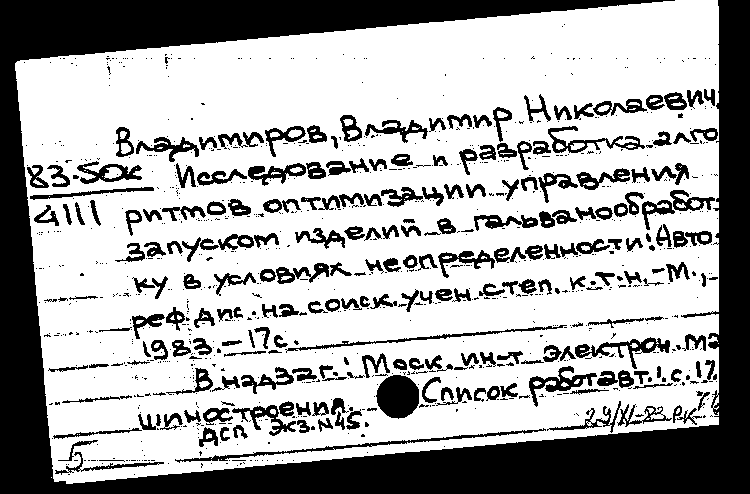 Владимиров, Владимир Николаевич.
83.5ок Исследование и разработка алго
4111 ритмов оптимизации управления
запуском изделий в гальванообработ
ку в условиях неопределенности: Авто
реф. дис. на соиск. учен. степ. к.т.н. -М.,
1983. - 17с.
В надзаг.: Моск. ин-т электрон. ма
шиностроения. Список работ авт.: с. 17
ДСП Экз. №45.
5